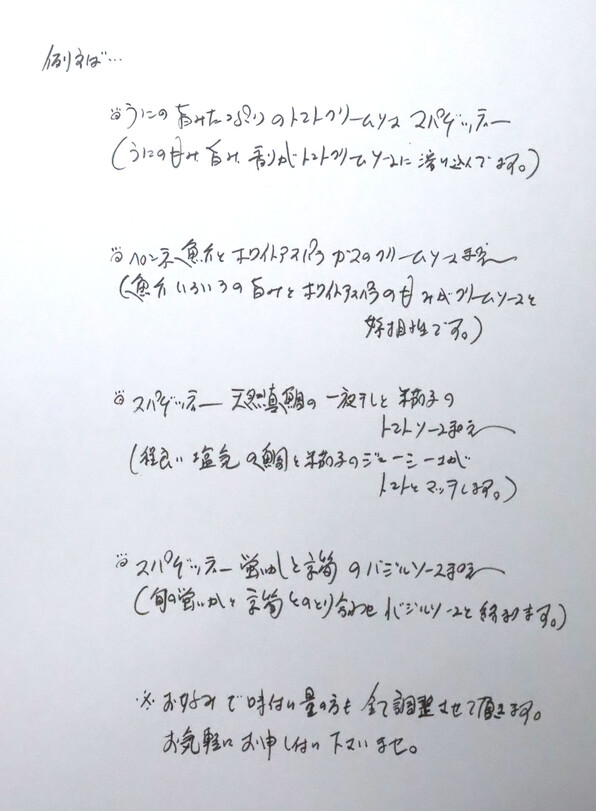 例えば…
※うにの旨みたっぷりのトマトクリームソース スパゲッティー
(うにの甘み 旨み 香りがトマトクリームソースに溶け込んでます。)
※ペンネ 魚介とホワイトアスパラガスのクリームソース和え
(魚介いろいろの旨みとホワイトアスパラの甘みがクリームソースと
好相性です。)
※スパゲッティー 天然真鯛の一夜干しと米茄子の
トマトソース和え
(程良い塩気の鯛と米茄子のジューシーさが
トマトとマッチします。)
※スパゲッティー 蛍いかと京筍のバジルソース和え
(旬の蛍いかと京筍とのとり合わせ バジルソースと絡みます。)
※お好みで味付け 量の方も全て調整させて頂きます。
お気軽にお申し付け下さいませ。